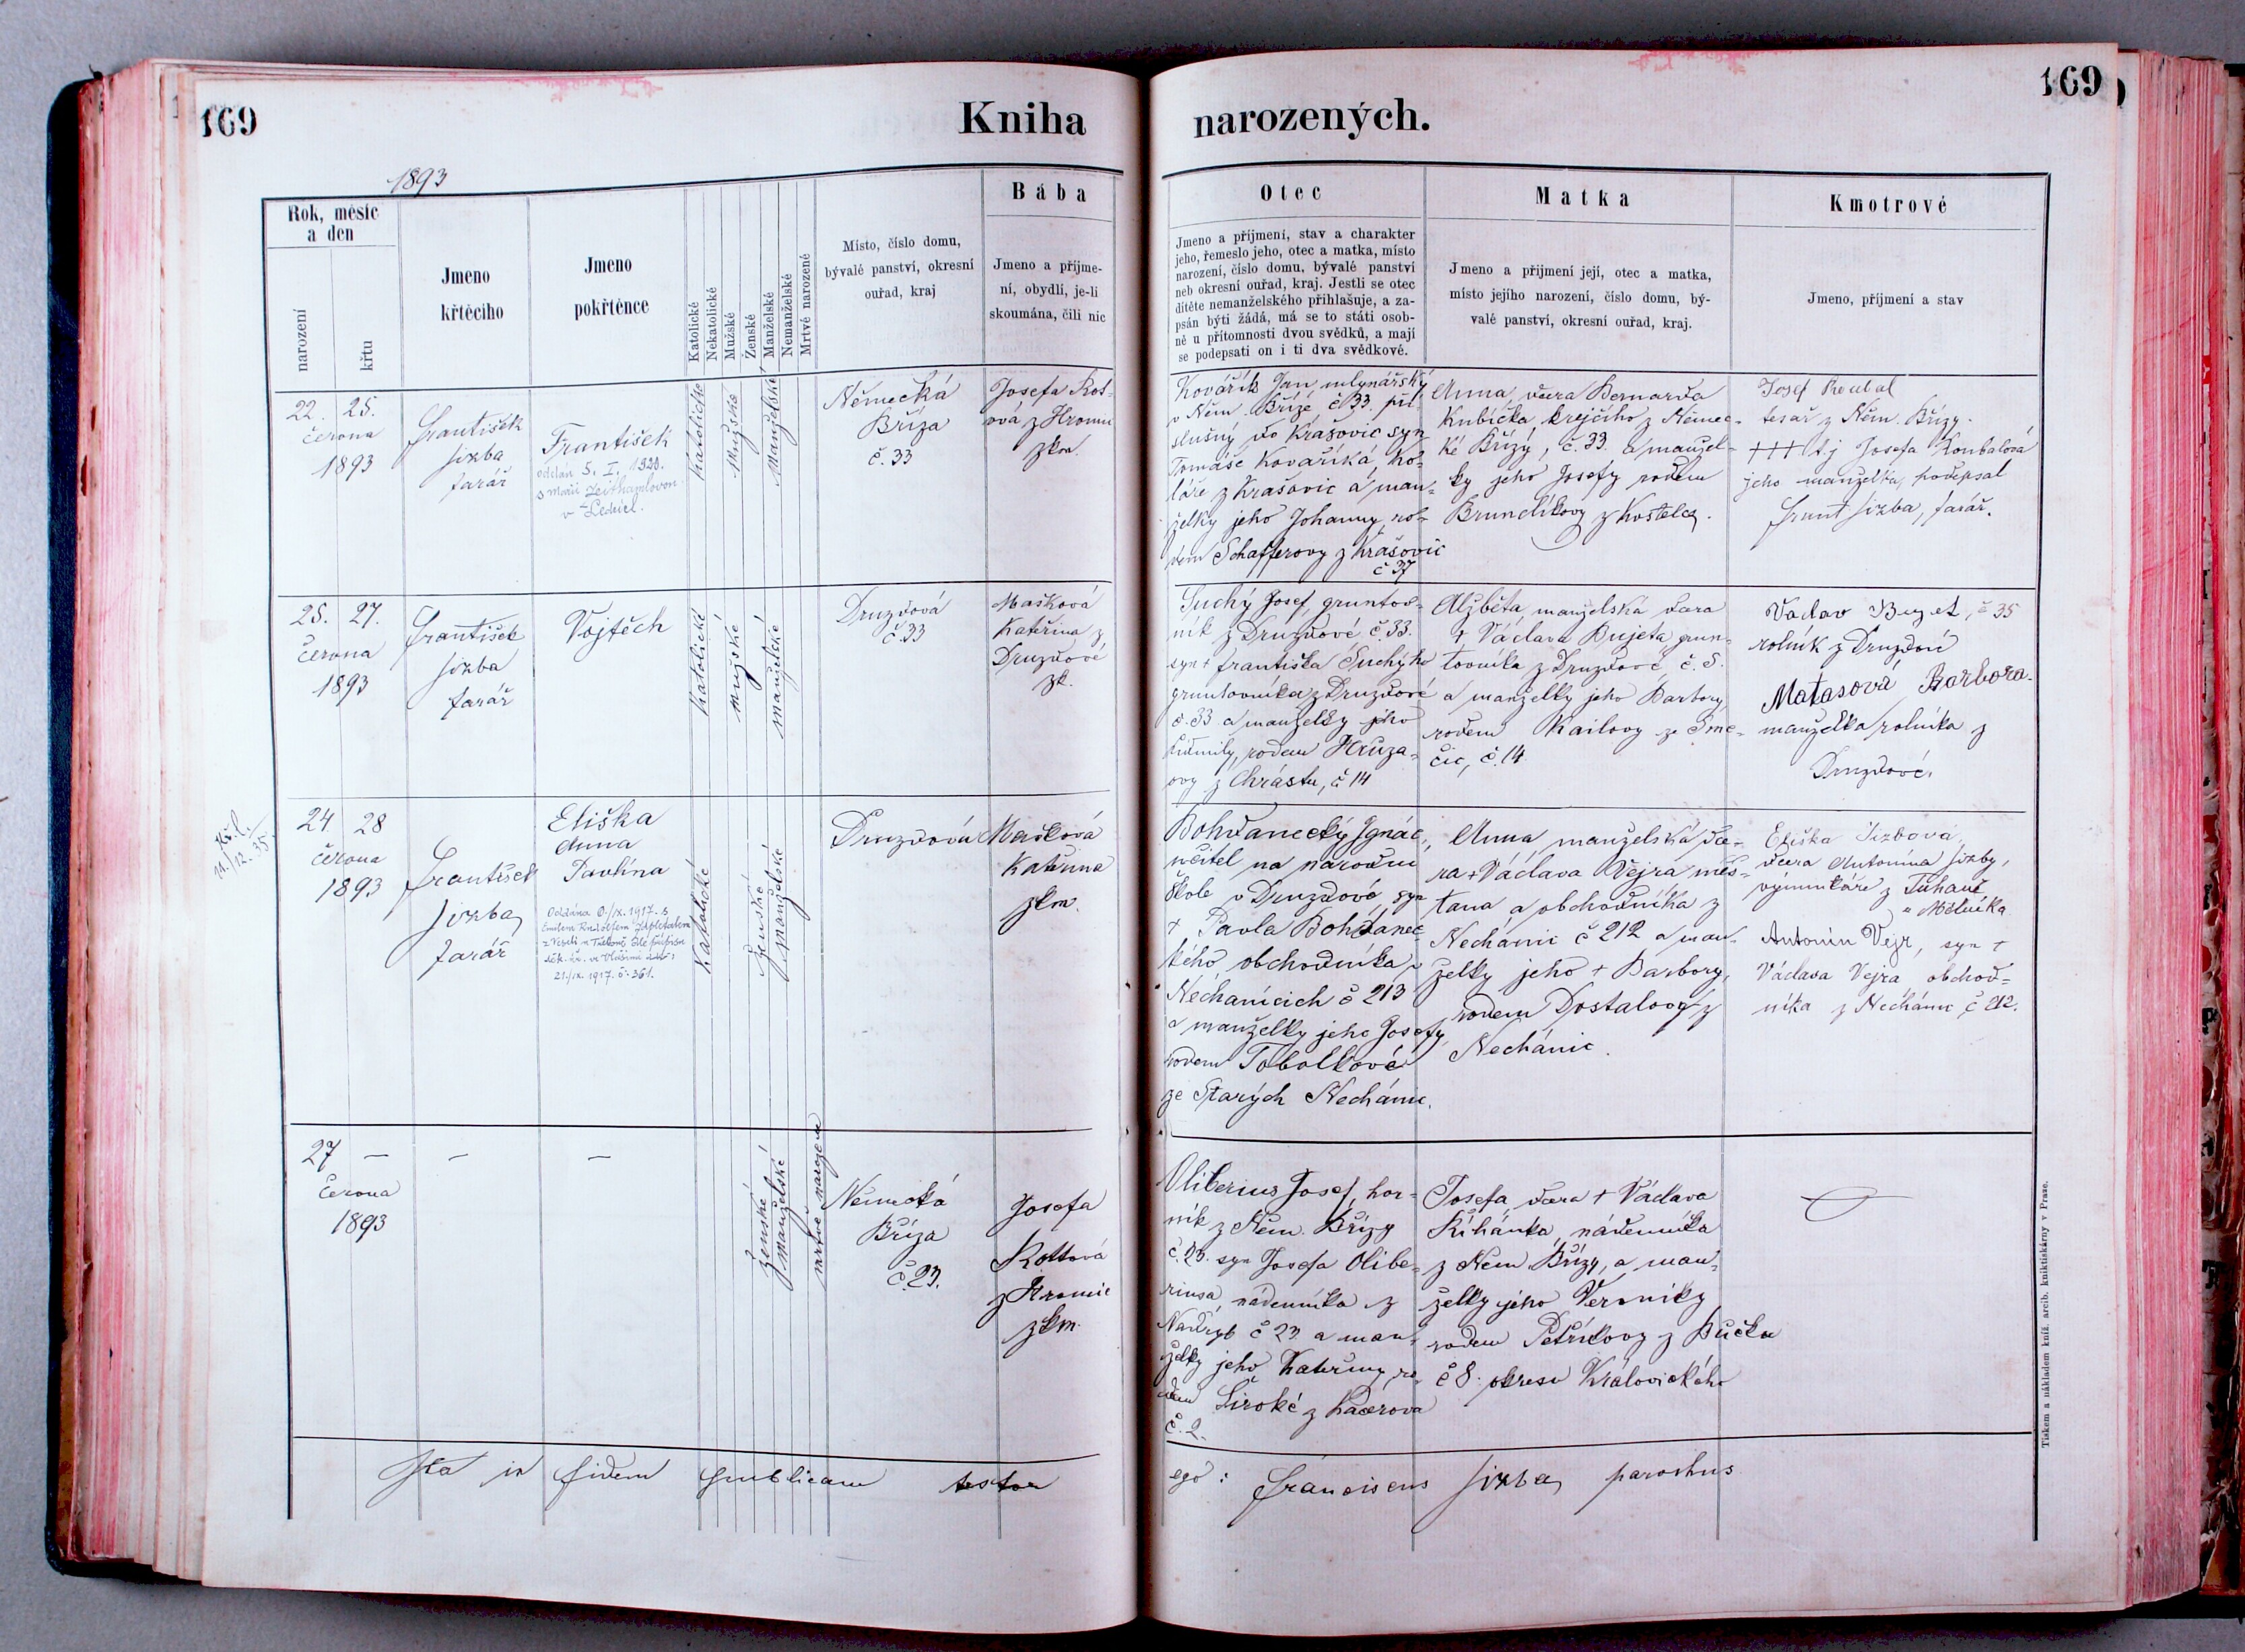 169
Kniha
narozených.
169
1893
Rok, měsíc
a den
narození
křtu
Jmeno
křtěcího
Jmeno
pokřtěnce
Katolické
Nekatolické
Mužské
Ženské
Manželské
Nemanželské
Mrtvé narozené
Místo, číslo domu,
bývalé panství, okresní
ouřad, kraj
Bába
Jmeno a příjme-
ní, obydlí, je-li
skoumána, čili nic
Otec
Jmeno a příjmení, stav a charakter
jeho, řemeslo jeho, otec a matka, místo
narození, číslo domu, bývalé panství
neb okresní ouřad, kraj. Jestli se otec
dítěte nemanželského přihlašuje, a za-
psán býti žádá, má se to státi osob-
ně u přítomnosti dvou svědků, a mají
se podepsati on i ti dva svědkové.
Matka
Jmeno a příjmení její, otec a matka,
místo jejího narození, číslo domu, bý-
valé panství, okresní ouřad, kraj.
Kmotrové
Jmeno, příjmení a stav
22. 25.
června
1893
František
Sixba
farář
František
oddán 5. I. 1920.
v Ledcích.
katolické
mužské
manželské
Německá
Bříza
č. 33
Josefa Kot-
ová z Hromic
zkm.
Kovářík Jan, mlynářský
v Něm. Bříze, č. 33. pří-
slušný do Krašovic syn
Tomáše Kovaříka, ko-
láře z Krašovic a man-
želky jeho Johanny, ro-
dem Schafferovy z Krašovic
č 37
Anna, dcera Bernarda
Kubíčka, krejčího z Němec-
ké Břízy, č. 33. a manžel-
ky jeho Josefy rodem
z Kostelce.
Josef
tesař z Něm. Břízy.
+++ t. j. Josefa
jeho manželka, podepsal
Frant Sixba, farář.
25. 27.
června
1893
František
Sixba
farář
Vojtěch
katolické
mužské
manželské
Druzdová
č. 33
Mašková
Kateřina z
Druzdové
zk.
Suchý Josef, gruntov-
ník z Druzdové č. 33.
syn + Františka Suchýho
gruntovníka z Druzdové
č. 33 a manželky jeho
Lidmily, rodem Hrůza-
ovy z Chrástu, č 14
Alžběta manželská dcera
+ Václava Bujeta, grun-
tovníka z Druzdové č. 5.
a manželky jeho Barbory,
rodem Kailovy ze Sme-
čic, č. 14
Václav Bujet, č 35
rolník z Druzdové
Matasová Barbora
manželka rolníka z
Druzdové.
Kř. l.
11./12. 35.
24. 28
června
1893
František
Sixba,
farář
Eliška
Anna
Pavlína
Oddána 6./IX. 1917. s
21./IX. 1917. č. 361.
Katolické
ženské
manželské
Druzdová
Mašková
Kateřina
zkm.
Bohdanecký Ignác,
učitel na národní
škole v Druzdové, syn
+ Pavla Bohdanec-
kého obchodníka v
Nechanicích č 213
a manželky jeho Josefy
rodem Tobolkové
ze Starých Nechánic.
Anna manželská dce-
ra + Václava Vejra měš-
ťana a obchodníka z
Nechánic č 212 a man-
želky jeho + Barbory,
rodem Dostalovy z
Nechánic.
Eliška Sixbova,
dcera Antonína Sixby,
výminkáře z Tuhaně
u Mělníka
Antonín Vejr, syn +
Václava Vejra, obchod-
níka z Nechánic č 212.
27 — — —
června
1893
ženské
manželské
mrtvě narozen
Německá
Bříza
č. 23.
Josefa
Kottová
z Hromic
zkm.
Oliberius Josef, hor-
ník z Něm. Břízy
č. 23. syn Josefa Olibe-
riusa, nádenníka z
č 23 a man-
želky jeho Kateřiny, ro-
dem Široké z Kacerova
č. 2.
Josefa, dcera + Václava
Říhánka, nádenníka
z Něm. Břízy, a man-
želky jeho Veroniky
rodem Petříkovy z Bučku
č 8. okresu Královického
Ita in fidem publicam testor
ego: Franciscus Sixba, parochus
Tiskem a nákladem kníž. arcib. knihtiskárny v Praze.